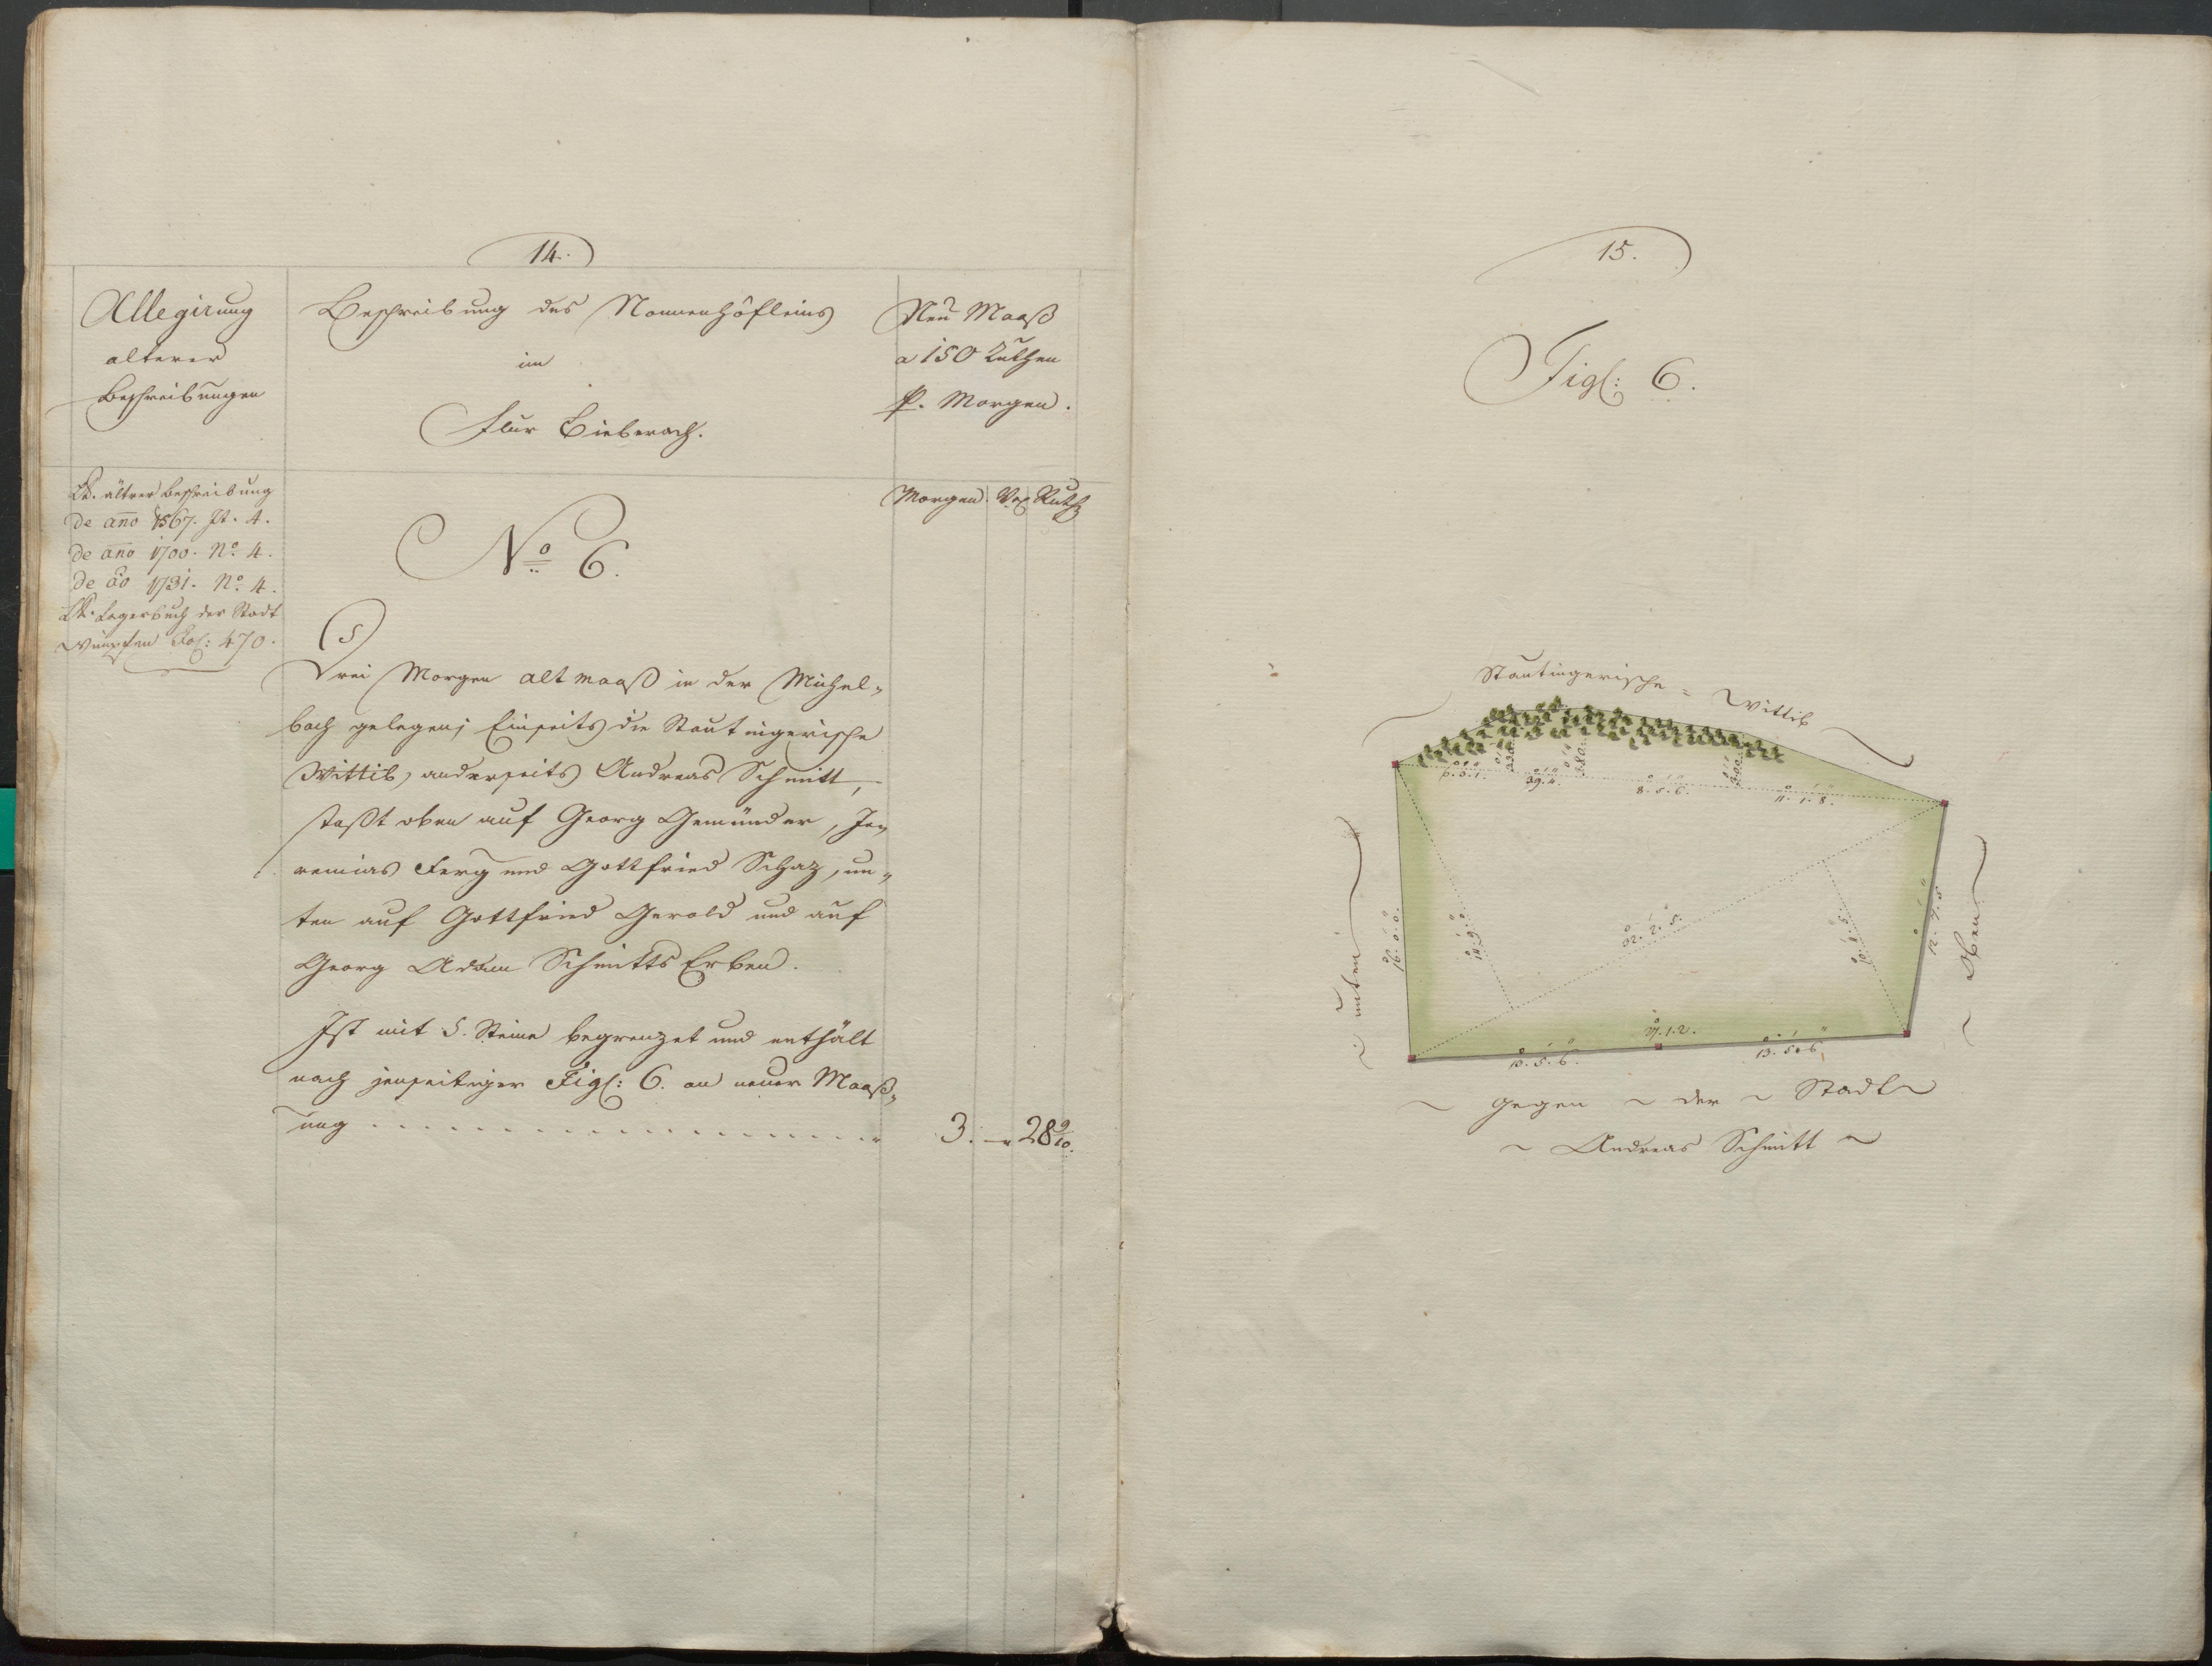 14.
Allegirung
älterer
Beschreibungen
Beschreibung des Nonnenhöfleins
im
Flur Bieberach.
Neu Maaß
a 150 Ruthen
p. Morgen.
Morgen. Vrl. Ruth
älterer Beschreibung
de anno 1567. It. 4.
de anno 1700. No. 4.
de ao 1731. No. 4.
Lagerbuch der Stadt
Wimpfen Fol: 470.
No 6.
Drei Morgen alt maaß in der Michel-
bach gelegen; Einseits die Stautingerische
Wittib, anderseits Andreas Schmitt,
stoßt oben auf Georg Gemünder, Je-
remias Ferg und Gottfried Schaz, un-
ten auf Gottfried Gerold und auf
Georg Adam Schmitts Erben.
Ist mit 5. Steine begrenzet und enthält
nach jenseitiger Fig: 6. an neuer Maaß-
ung
3. — 28 9/10.
15.
Fig: 6.
Stautingerische = Wittib
6.6.1.
39.4.
8.5.6.
11.1.8.
unten
16.0.0.
14.9.0.
32.2.5.
10.8.5.
12.7.5.
Oben
27.1.2.
13.5.6.
13.5.6.
gegen der Stadt
Andreas Schmitt